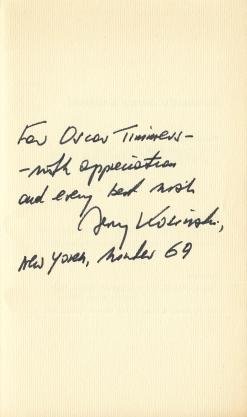 For Oscar Timmers –
– with appreciation
and every best wish
Jerzy Kosinski,
New York, 69